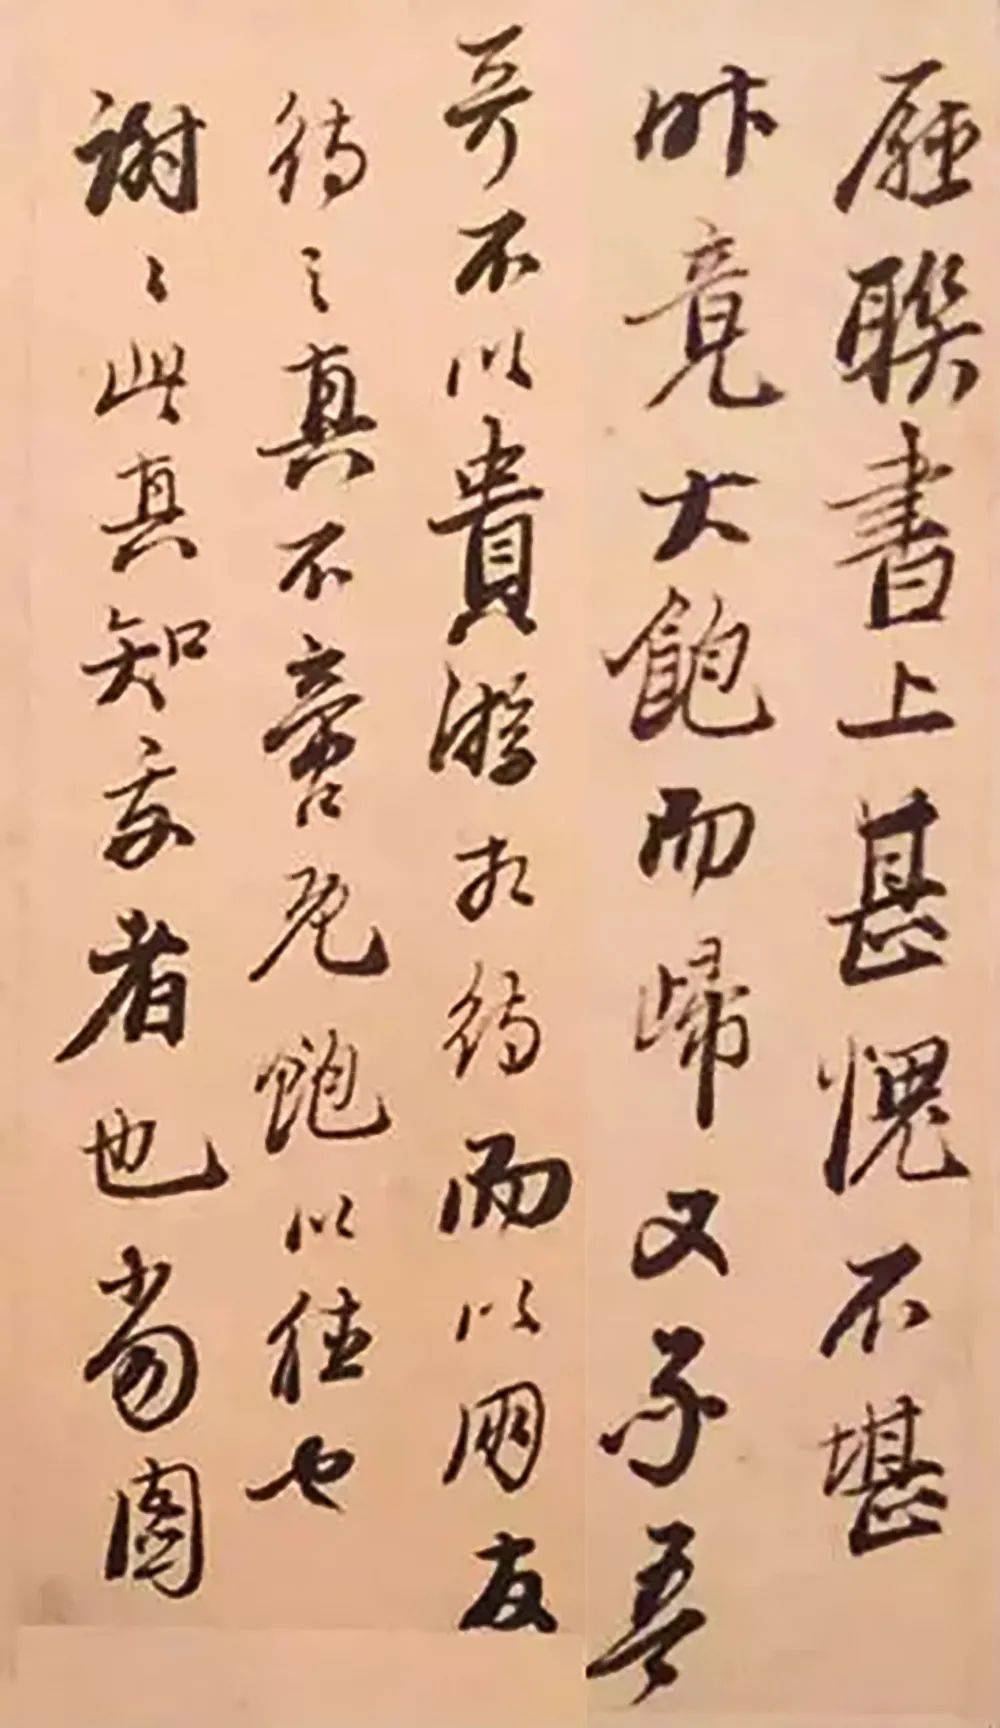 聯書上甚愧不堪
昨竟大飽而歸又承吾
哥不以貴游相待而以朋友
待之真不啻既飽以德也
謝〻此真知者也當圖